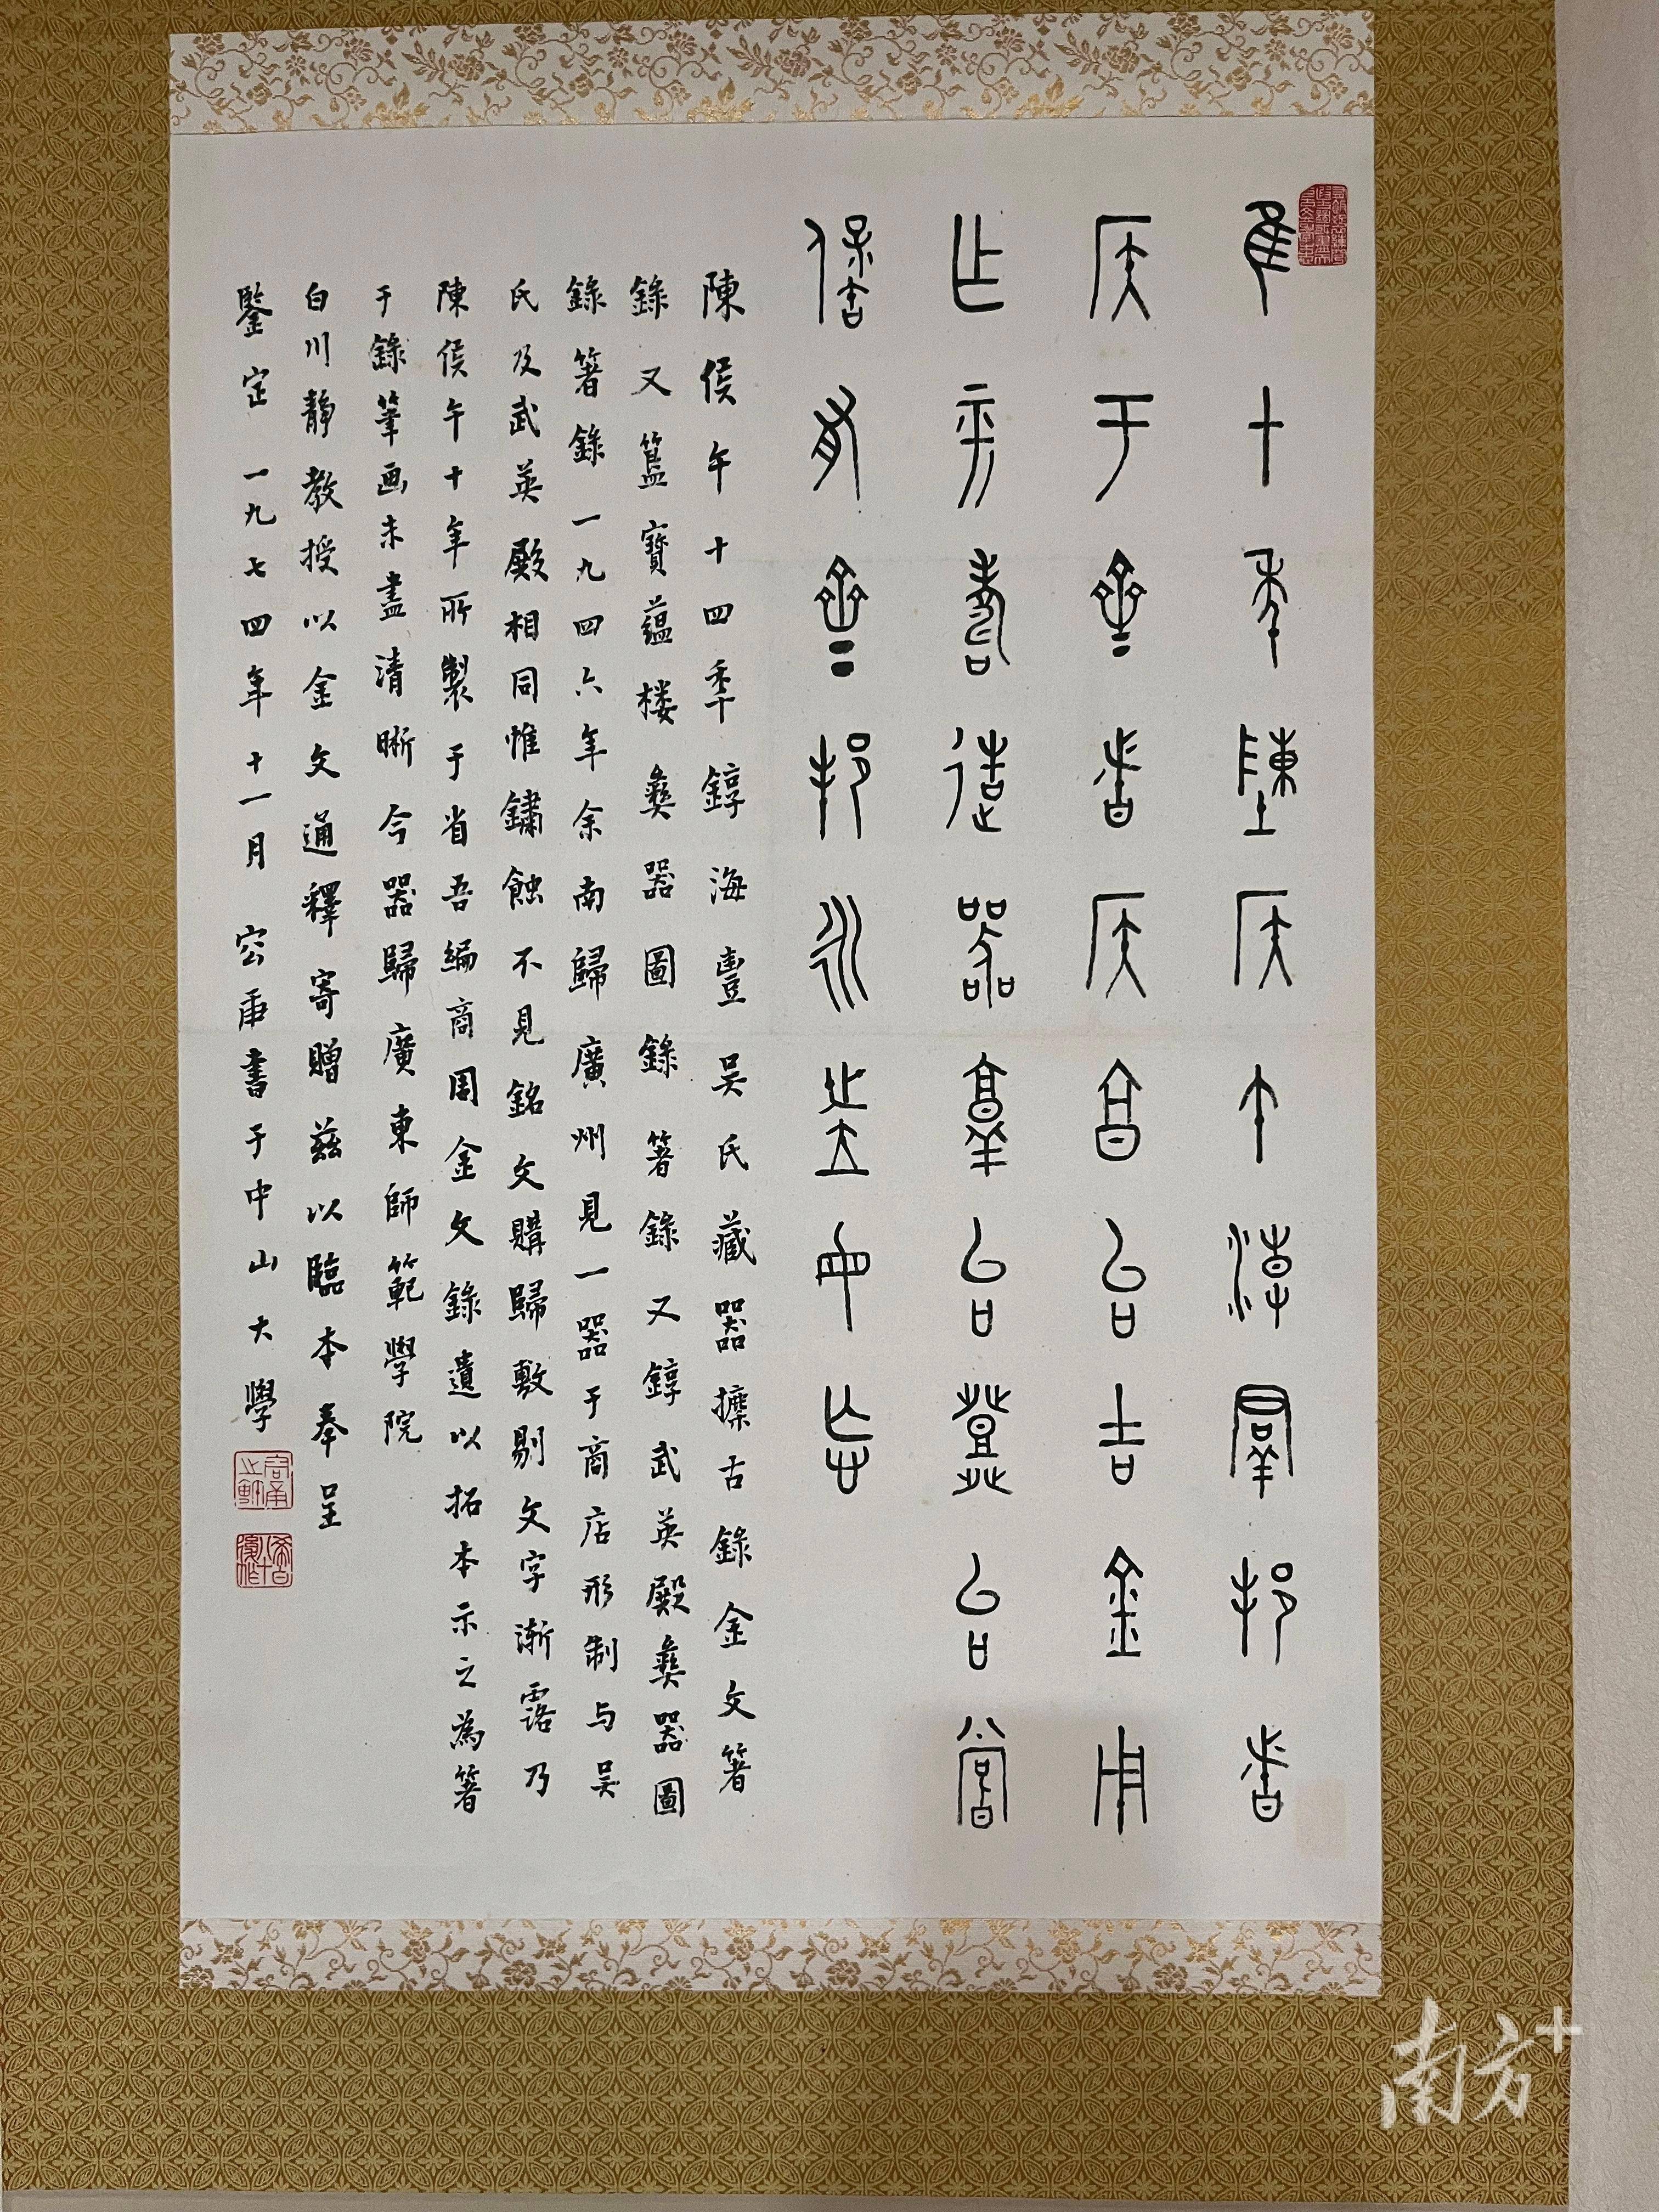 隹十年陳侯午淖群邦者
侯于齊者侯享台吉金用
乍平壽造器敦台登台嘗
保有齊邦永世毋忘
陳侯午十四年錞海豐吳氏藏器攈古錄金文箸
錄又簋寶蘊楼彝器圖錄箸錄又錞武英殿彝器圖
錄箸錄一九四六年余南歸廣州見一器于商店形制与吳
氏及武英殿相同惟鏽蝕不見銘文購歸敷剔文字渐露乃
陳侯午十年所製于省吾編商周金文錄遺以拓本示之為箸
于錄筆画未盡清晰今器歸廣東師範學院
白川靜教授以金文通釋寄贈茲以臨本奉呈
鑒定 一九七四年十一月 容庚書于中山大學
容庚之鉨
南方+